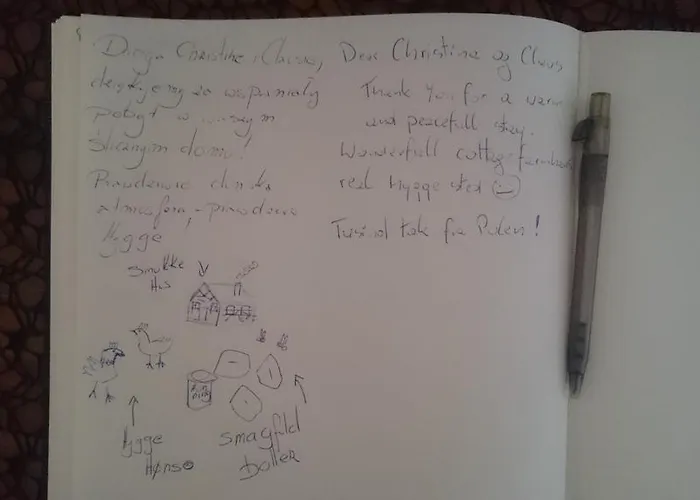 Droga Christine i Claus,
dziękujemy za wspaniały
pobyt w waszym
ślicznym domu!
Prawdziwie duńska
atmosfera, - prawdziwe
Hygge
Smukke
Hus
Hygge
Høns
smagfuld
boller
Dear Christine og Claus
Thank You for a warm
and peacefull stay.
Wonderfull cottage farmhouse
real Hygge sted
Tusind tak fra Polen!